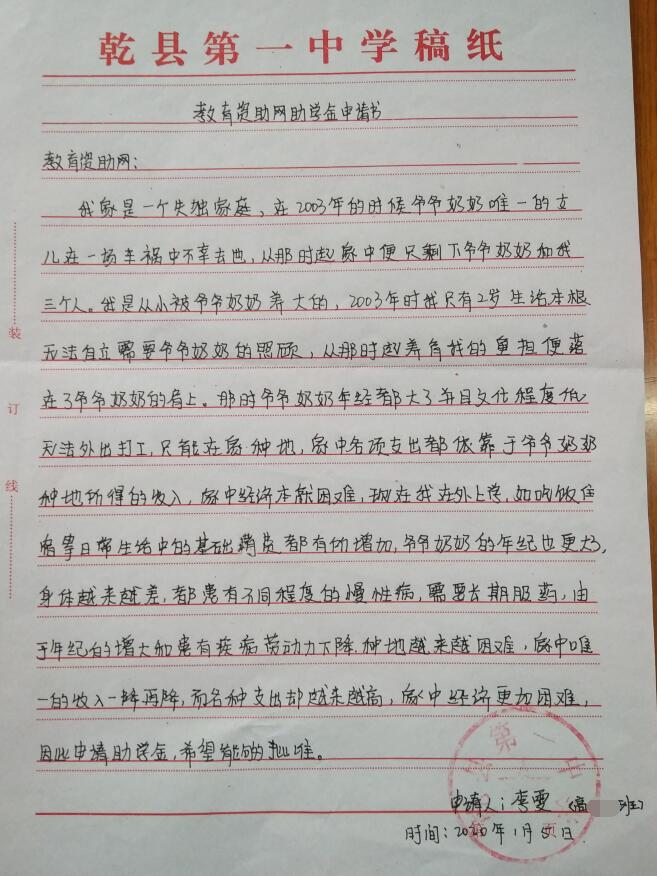 乾县第一中学稿纸
教育资助网助学金申请书
教育资助网：
我家是一个失独家庭，在2003年的时候爷爷奶奶唯一的女
儿在一场车祸中不幸去世，从那时起家中便只剩下爷爷奶奶和我
三个人。我是从小被爷爷奶奶养大的，2003年时我只有2岁生活本根
无法自立需要爷爷奶奶的照顾，从那时起养育我的重担便落
在了爷爷奶奶的肩上。那时爷爷奶奶年经都大了并且文化程度低
无法外出打工，只能在家种地，家中各项支出都依靠于爷爷奶奶
种地所得的收入，家中经济本就困难，现在我在外上学，如吃饭住
宿等日常生活中的基础消费都有所增加，爷爷奶奶的年纪也更大了，
身体越来越差，都患有不同程度的慢性病，需要长期服药，由
于年纪的增大和患有疾病劳动力下降，种地越来越困难，家中唯
一的收入一降再降，而各种支出却越来越高，家中经济更加困难，
因此申请助学金，希望能够批准。
申请人：李雯（高 班）
时间：2020年1月5日
装
订
线
第一中
页